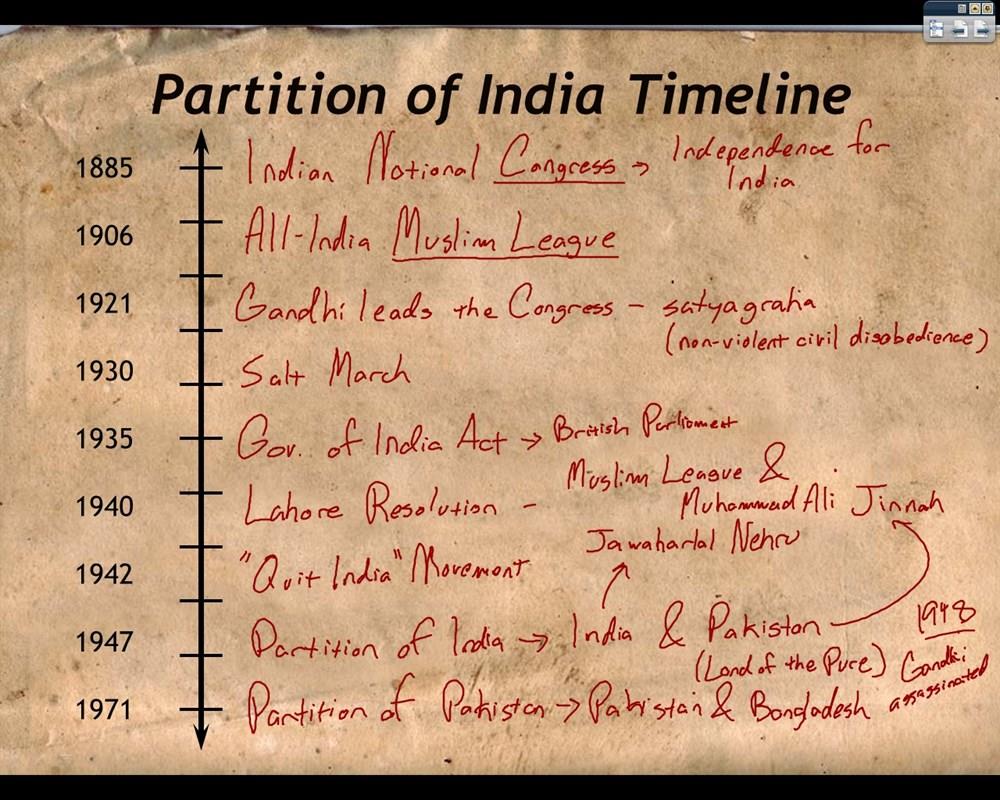 Partition of India Timeline
1885 Indian National Congress → Independence for
India
1906 All-India Muslim League
1921 Gandhi leads the Congress - satyagraha
(non-violent civil disobedience)
1930 Salt March
1935 Gov. of India Act → British Parliament
Muslim League &
1940 Lahore Resolution - Muhammad Ali Jinnah
Jawaharlal Nehru
1942 "Quit India" Movement
1947 Partition of India → India & Pakistan
(Land of the Pure)
1948
Gandhi
assassinated
1971 Partition of Pakistan → Pakistan & Bangladesh